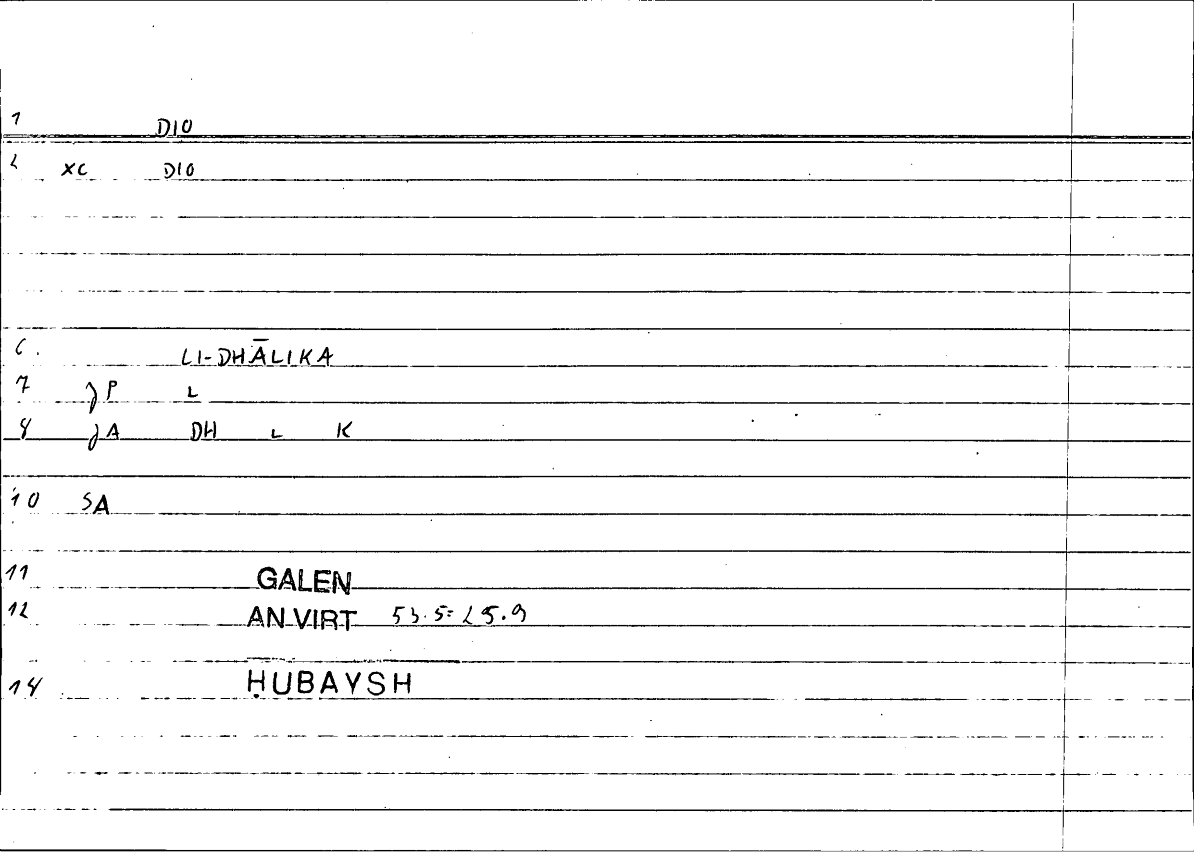 1 DIO
2 XC DIO
6. LI-DHĀLIKA
7 JP L
8 JA DH L K
10 SA
11 GALEN
12 AN VIRT 53.5= 25.9
14 ḤUBAYSH